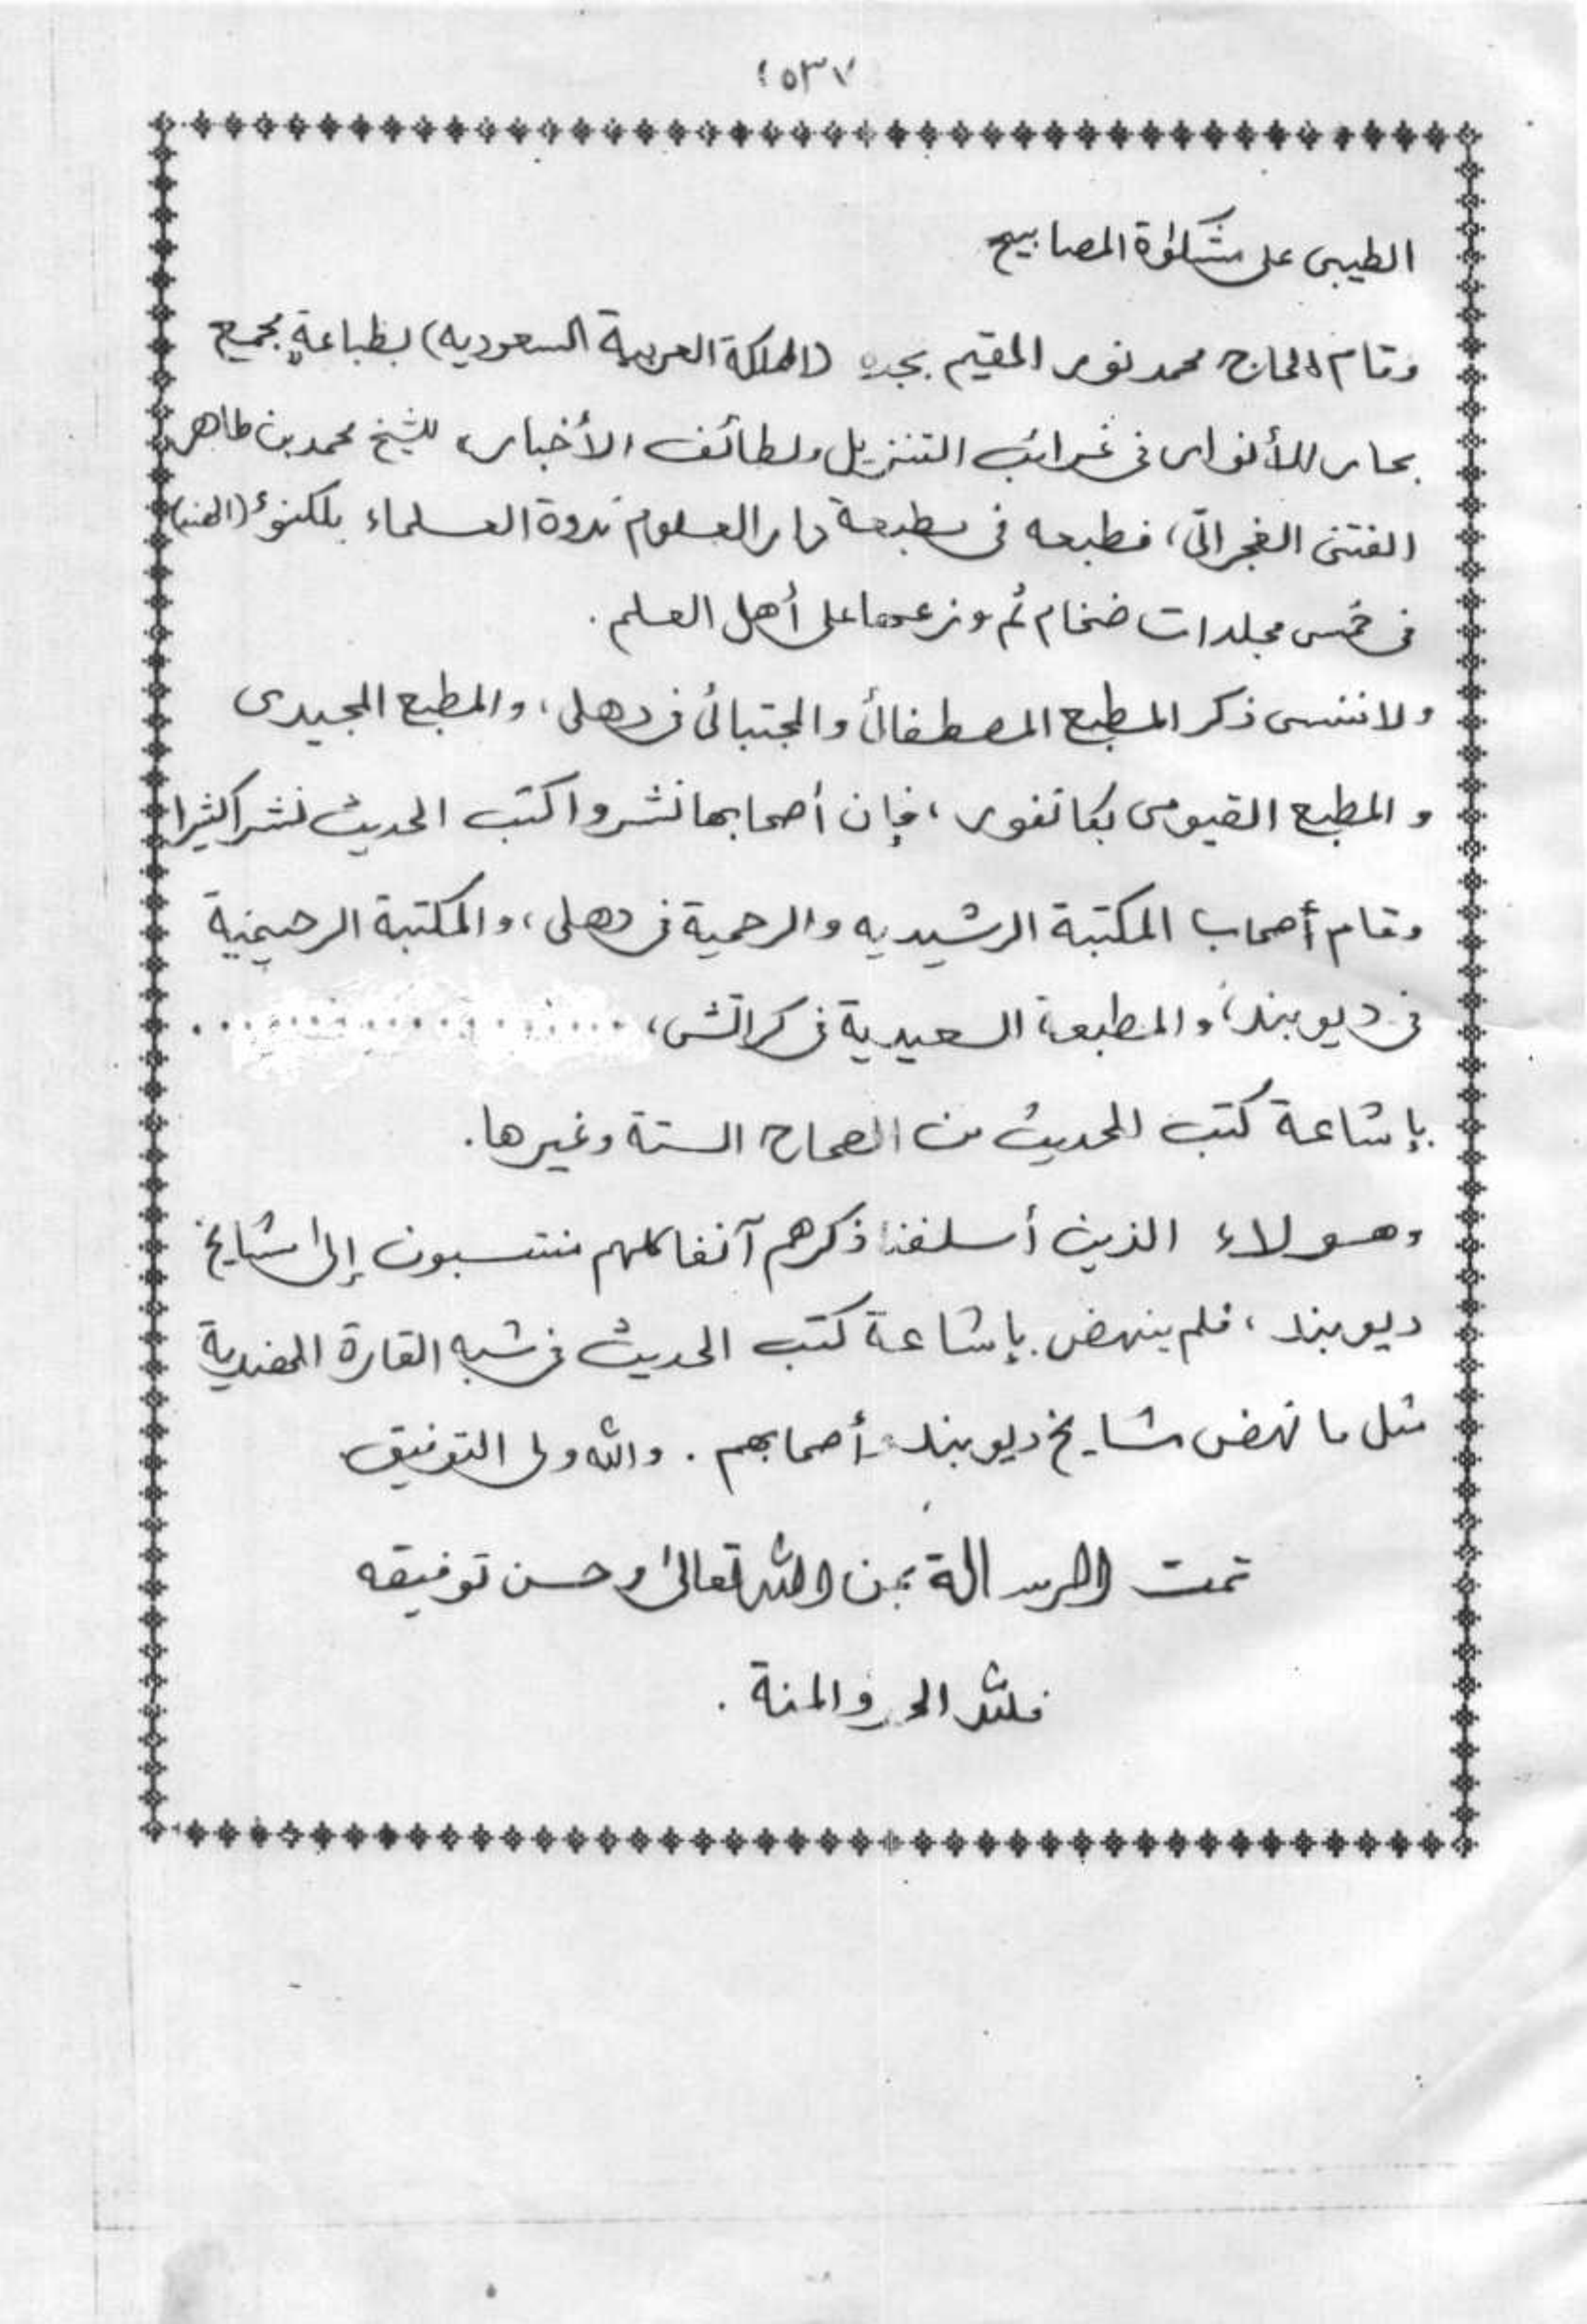 ٥٣٧
الطيبى على مشكوٰة المصابيح
وقام الحاج محمد نور المقيم بجده (المملكة العربية السعوديه) بطباعة مجمع
بحار الأنوار فى غرائب التنزيل ولطائف الأخبار، للشيخ محمد بن طاهر
الفتنى الغجراتى، فطبعه فى مطبعة دار العلوم ندوة العلماء بلكنوء (الهند)
فى خمس مجلدات ضخام ثم وزعها على أهل العلم.
ولا ننسى ذكر المطبع المصطفائى والمجتبائى فى دهلى، والمطبع المجيدى
و المطبع القيومى بكانفور، فإن أصحابها نشروا كتب الحديث نشرا كثيرا
وقام أصحاب المكتبة الرشيديه والرحمية فى دهلى، والمكتبة الرحيمية
فى ديوبند، والمطبعة السعيدية فى كراتشى، ..................
بإشاعة كتب الحديث من الصحاح الستة وغيرها.
وهولاء الذين أسلفنا ذكرهم آنفا كلهم منتسبون إلى مشايخ
ديوبند، فلم ينهض بإشاعة كتب الحديث فى شبه القارة الهندية
مثل ما نهض مشايخ ديوبند وأصحابهم. والله ولى التوفيق
تمت الرسالة بمن الله تعالىٰ وحسن توفيقه
فلله الحمد والمنة.